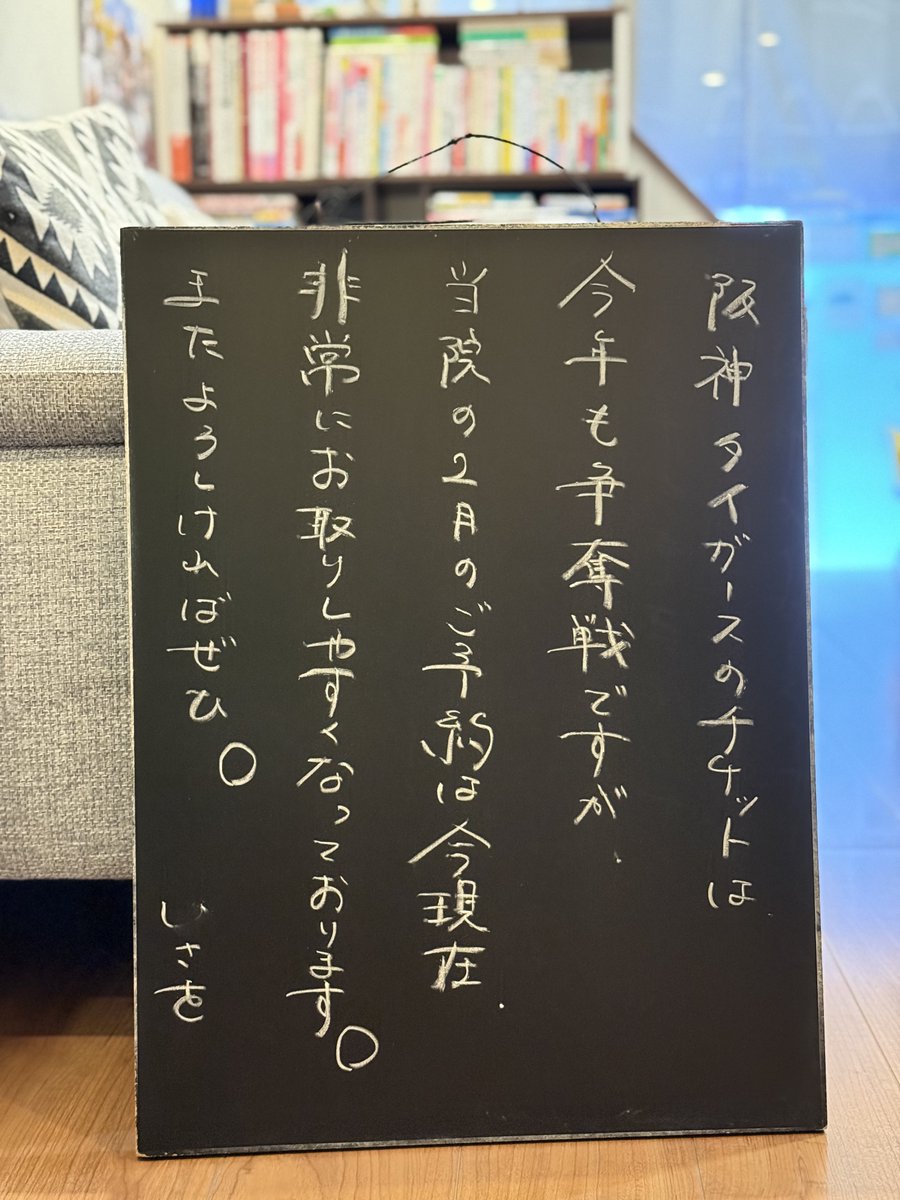 阪神タイガースのチケットは
今年も争奪戦ですが、
当院の2月のご予約は今現在、
非常にお取りしやすくなっております。
またよろしければぜひ。 いさを